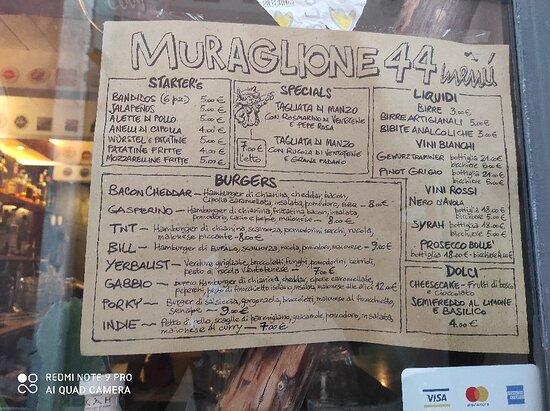 MURAGLIONE 44 menù
STARTER's
BANDIDOS (6 pz) 5.00€
JALAPEÑOS 5.00€
ALETTE DI POLLO 5.00€
ANELLI DI CIPOLLA 4.00€
WÜRSTEL e PATATINE 5.00€
PATATINE FRITTE 4.00€
MOZZARELLINE FRITTE 5.00€
SPECIALS
TAGLIATA DI MANZO
CON ROSMARINO
E PEPE ROSA
TAGLIATA DI MANZO
CON RUCOLA
E GRANA PADANO
7.00€
L'etto
BURGERS
BACON CHEDDAR - Hamburger di chianina, cheddar, bacon,
cipolla caramellata, insalata, pomodoro, BBQ - 8.00€
GASPERINO - Hamburger di chianina, frittatina, bacon, insalata,
pomodorini, cacio e pepe, maionese - 8.00€
TNT - Hamburger di chianina, scamorza, pomodorini secchi, rucola,
maionese piccante - 8.00€
BILL - Hamburger di BUFALO, scamorza, rucola, pomodoro, maionese - 9.00€
YERBALIST - Verdure grigliate, broccoletti, funghi, pomodorini, cetrioli,
pesto di rucola - 7.00€
GABBIO - Hamburger di chianina, cheddar, cipolle caramellate,
insalata, pomodoro, maionese alle alici 12.00€
PORKY - Burger di salsiccia, gorgonzola, broccoletti, maionese al finocchietto,
senape - 9.00€
INDIE - Petto di pollo, scaglie di parmigiano, guacamole, pomodoro, insalata,
maionese al curry - 7.00€
LIQUIDI
BIRRE 3.00€
BIRRE ARTIGIANALI 5.00€
BIBITE ANALCOLICHE 3.00€
VINI BIANCHI
GEWURZTRAMINER bottiglia 24.00€
bicchiere 5.00€
PINOT GRIGIO bottiglia 21.00€
bicchiere 5.00€
VINI ROSSI
NERO D'AVOLA bottiglia 18.00€
bicchiere 5.00€
SYRAH bottiglia 18.00€
bicchiere 5.00€
PROSECCO BOLLE'
bottiglia 18.00€ - bicchiere 4.00€
DOLCI
CHEESECAKE - Frutti di bosco
e cioccolato
SEMIFREDDO AL LIMONE
E BASILICO
4.00€
VISA mastercard
REDMI NOTE 9 PRO
AI QUAD CAMERA